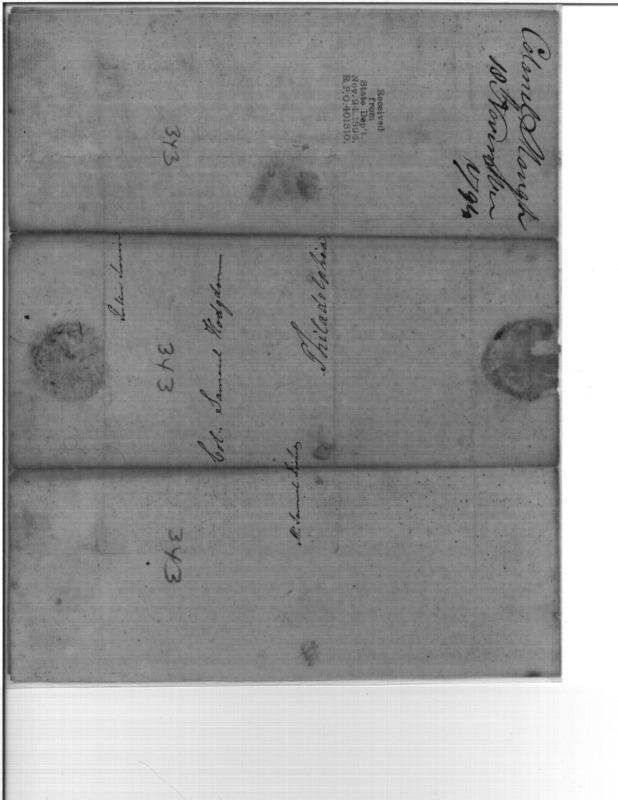 Colonel Slough
10 November
1794
Received
from
State Dep't.
Nov. 24, 1894,
R.P.O. 401810.
343
Public Service
343
Col. Samuel Hodgdon
Philadelphia
Mr. Samuel
343